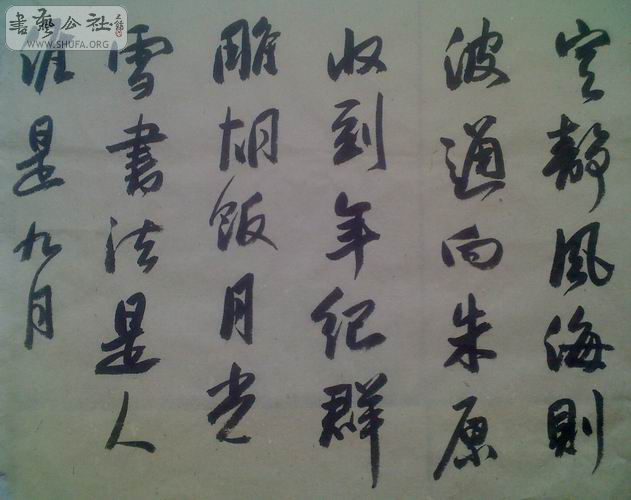 書藝公社
WWW.SHUFA.ORG
定靜風海則
波通向朱原
收到年紀群
雕胡飯月光
雪書法是人
是九月